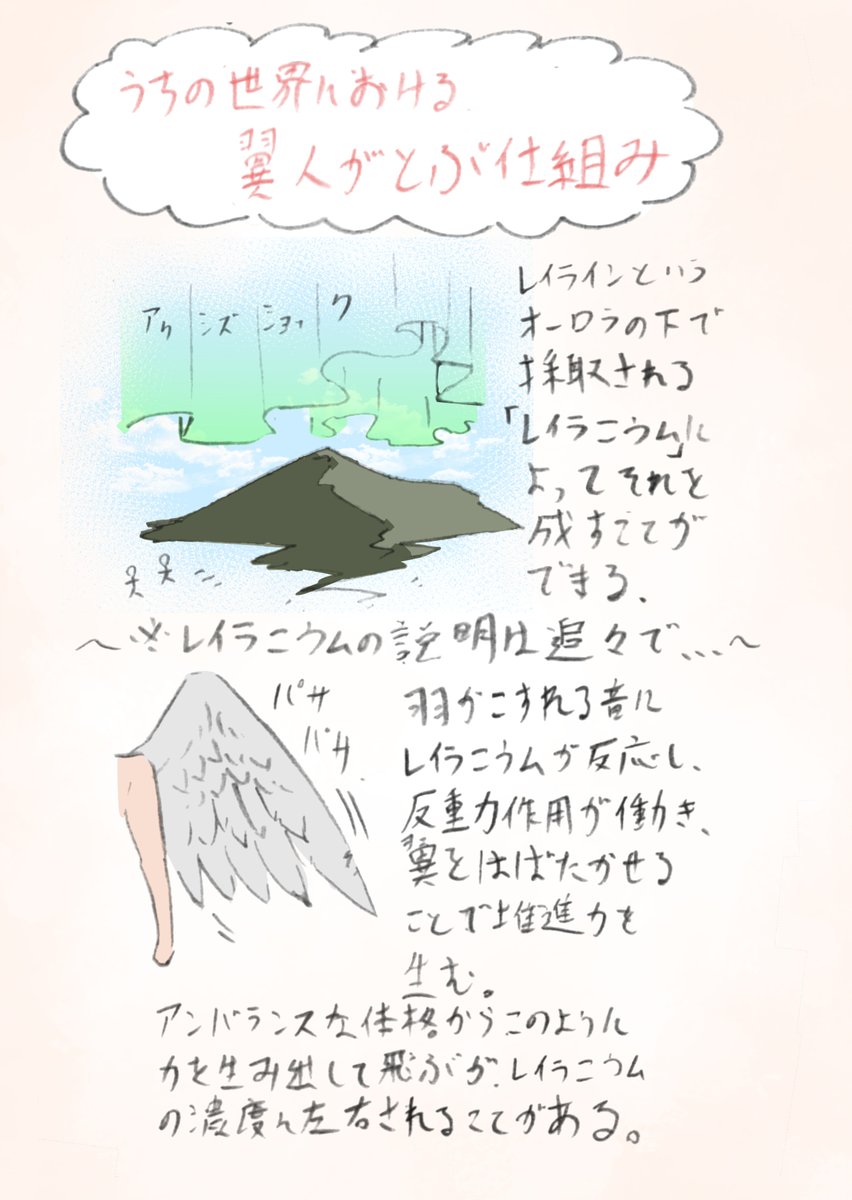 うちの世界における
翼人がとぶ仕組み
レイラインという
オーロラの下で
採取される
「レイラニウム」に
よってそれを
成すことが
できる、
～※レイラニウムの説明は追々で…～
パサ
パサ
羽がこすれる音に
レイラニウムが反応し、
反重力作用が働き、
翼をはばたかせる
ことで推進力を
生む。
アンバランスな体格からこのように
力を生み出して飛ぶが、レイラニウム
の濃度に左右されることがある。